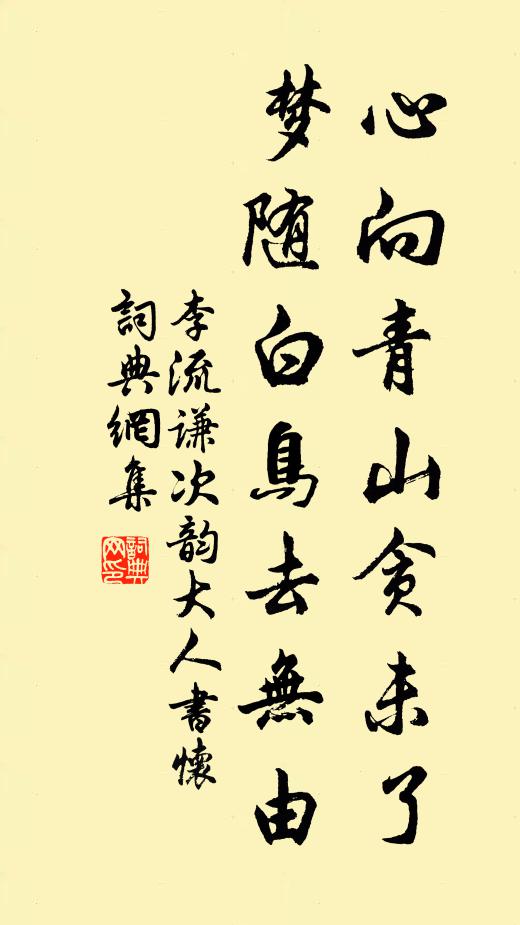 心向青山貪未了
梦随白鳥去無由
李流谦次韵大人書懷
詞典網集
詞典网印